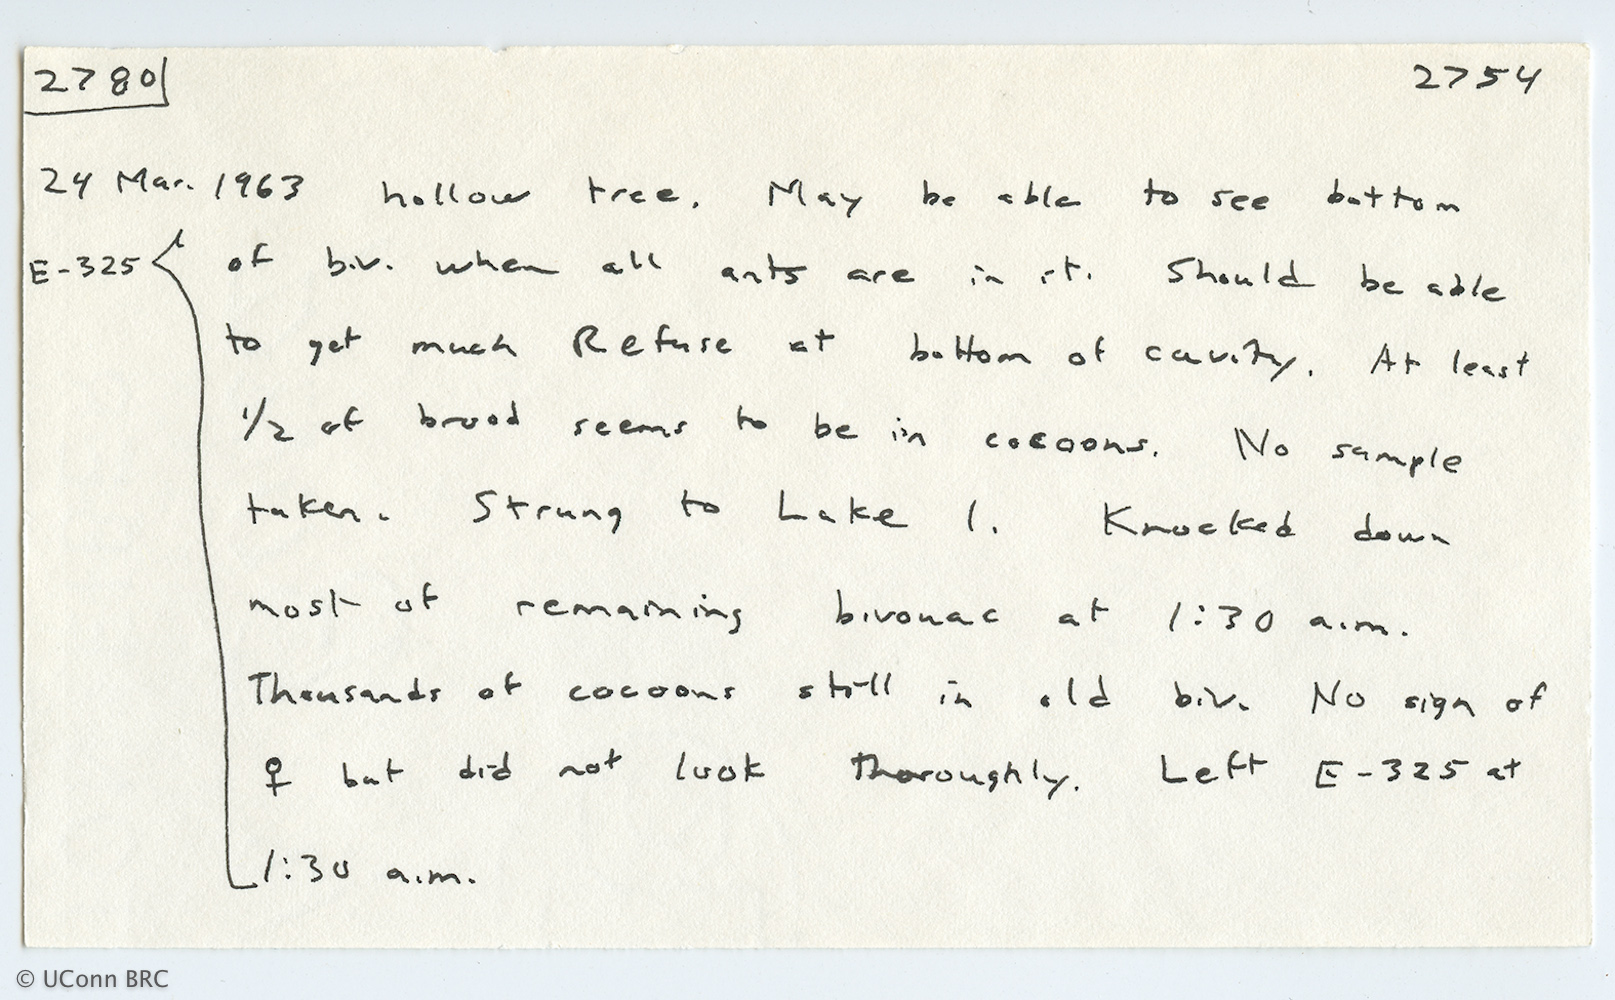 2780 2754
24 Mar. 1963 hollow tree. May be able to see bottom
E-325 of biv. when all ants are in it. Should be able
to get much Refuse at bottom of cavity. At least
1/2 of brood seems to be in cocoons. No sample
taken. Strung to Lake 1. Knocked down
most of remaining bivouac at 1:30 a.m.
Thousands of cocoons still in old biv. No sign of
♀ but did not look thoroughly. Left E-325 at
1:30 a.m.
© UConn BRC